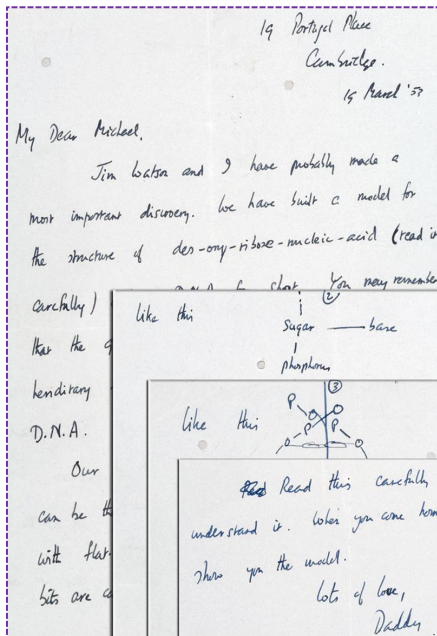 19 Portugal Place
Cambridge.
19 March '53
My Dear Michael,
Jim Watson and I have probably made a
most important discovery. We have built a model for
the structure of des-oxy-ribose-nucleic-acid (read it
carefully) for short. You may remember
that the
hereditary
D.N.A.
Our
can be
with flat
bits are
②
like this
Sugar — base
phosphorus
③
like this
P O O
O P P O
Read this carefully
understand it. When you come home
show you the model.
Lots of love,
Daddy